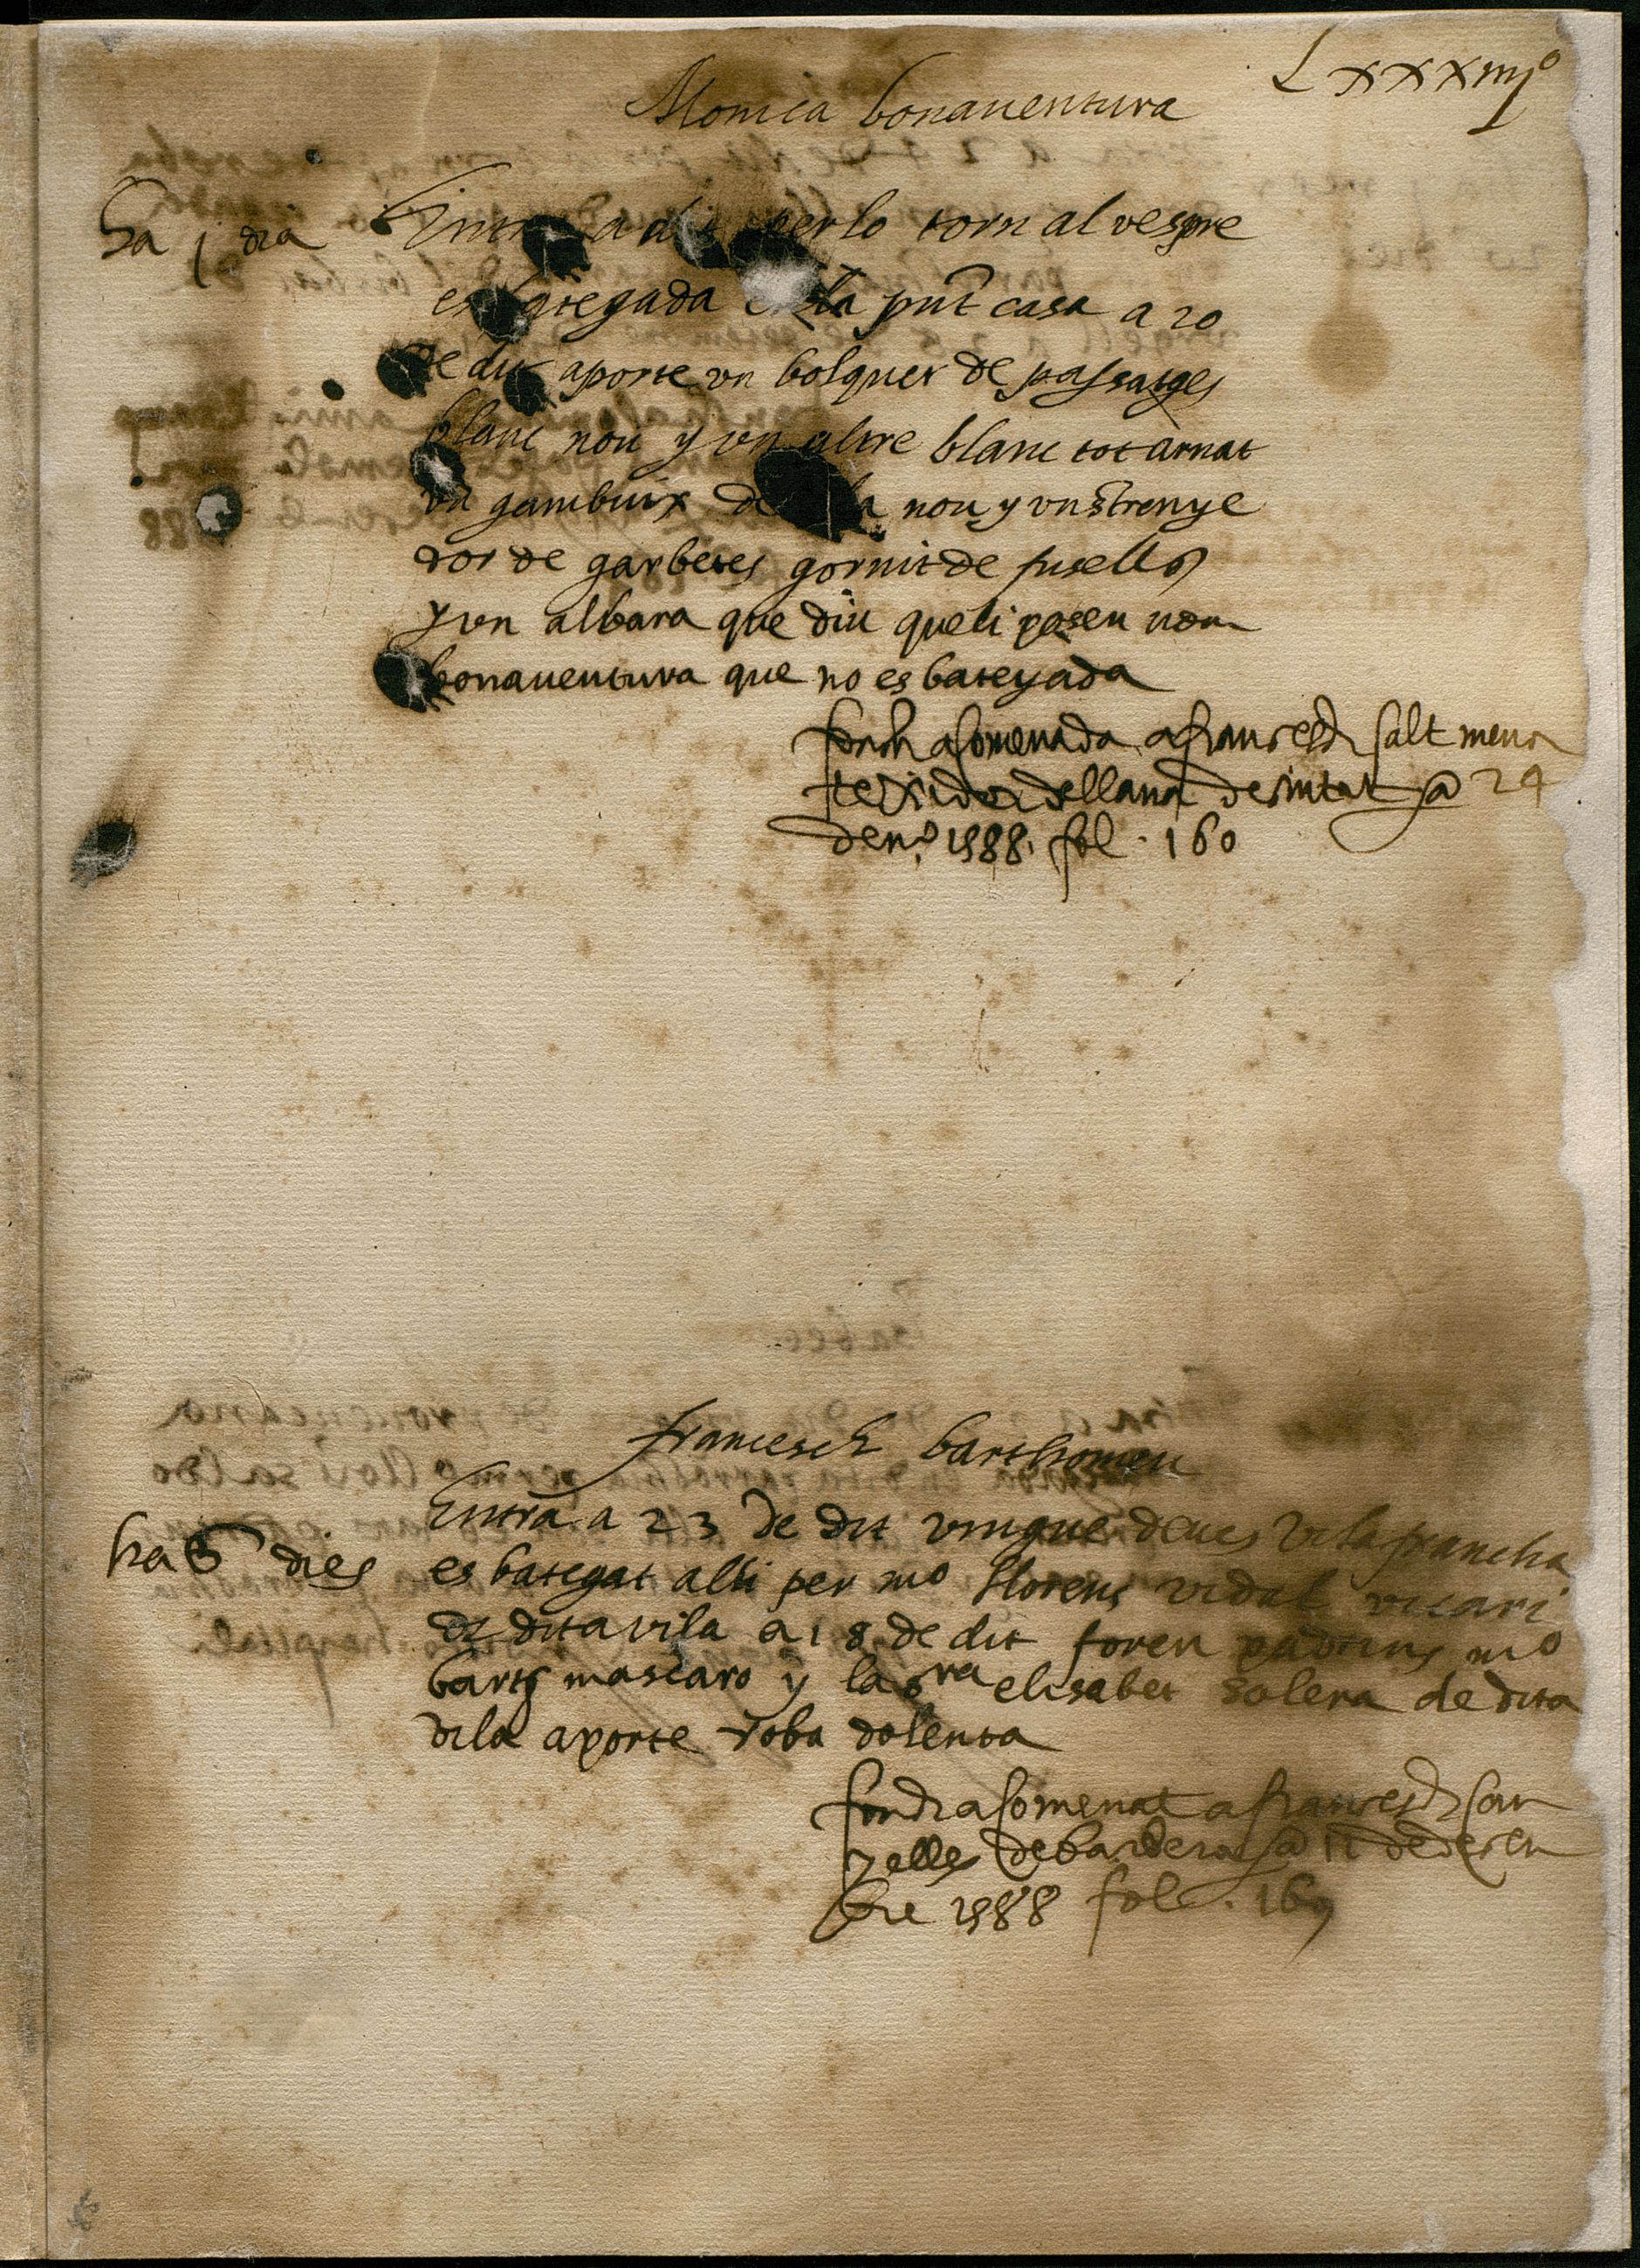 Lxxxiiijº
Monica bonaventura
ha j dia
Entra a dit per lo torn al vespre
es bategada en la pnt casa a 20
de dit aporte un bolquer de passatges
blanc nou y un altre blanc tot arnat
un gambuix de tela nou y un strenye
dor de garbetes gornit de fusellos
y un albara que diu que li posen nom
bonaventura que no es bateyada
fonch acomenada a francesch salt menor
texidor de llana de ciutat a 24
de nº 1588 fol. 160
francesch barthomeu
ha 8 dies
Entra a 23 de dit vingue de ves vilafrancha
es bategat alli per mº llorens vidal vicari
de dita vila a 18 de dit foren padrins mº
bart mascaro y la sra elisabet solera de dita
vila aporte roba dolenta
fonch acomenat a francesch can
yelles de bardera a 11 de desem
bre 1588 fol.